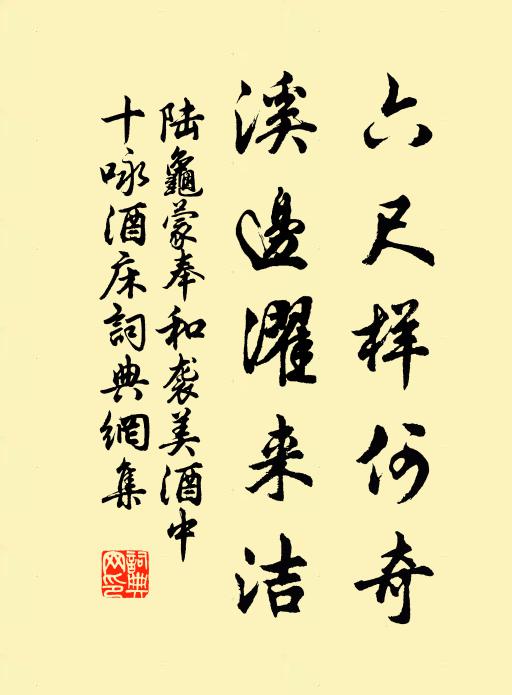 六尺样何奇
溪邊濯来洁
陆龜蒙奉和袭美酒中
十咏酒床詞典網集
詞典
网印